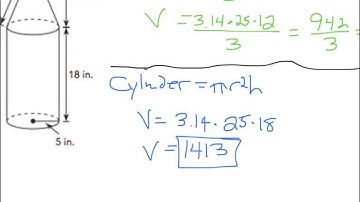 V = 3.14·25·12 / 3 = 942 / 3 =
18 in.
Cylnder = πr²h
V = 3.14·25·18
5 in.
V = 1413